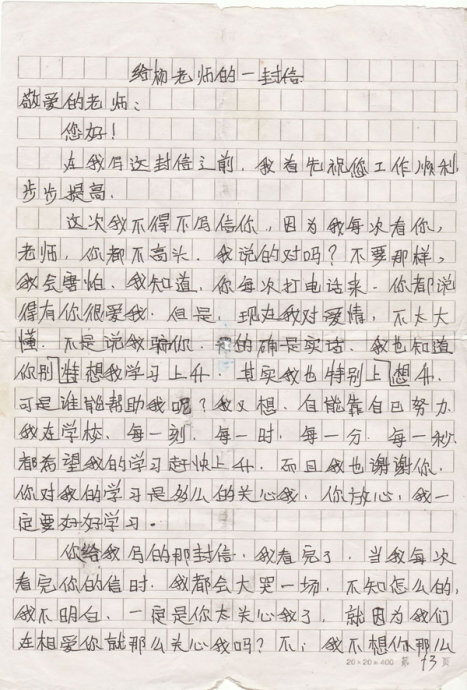 给柏老师的一封信
敬爱的老师：
您好！
在我写这封信之前，我首先祝您工作顺利
步步提高．
这次我不得不写信你，因为我每次看你，
老师，你都不高头．我说的对吗？不要那样，
我会害怕．我知道，你每次打电话来．你都说
得有你很爱我．但是，现在我对爱情，不太大
懂．不是说我骗你．的确是实话．我也知道
你别特想我学习上升．其实我也特别上想升．
可是谁能帮助我呢？我又想．自能靠自己努力
我在学校．每一刻．每一时，每一分．每一秒
都希望我的学习赶快上升．而且我也谢谢你．
你对我的学习是多么的关心我．你放心，我一
定要好好学习．
你给我写的那封信．我看完了．当我每次
看完你的信时．我都会大哭一场．不知怎么的，
我不明白．一定是你太关心我了，就因为我们
在相爱你就那么关心我吗？不，我不想你那么
20×20=400 第 13 页